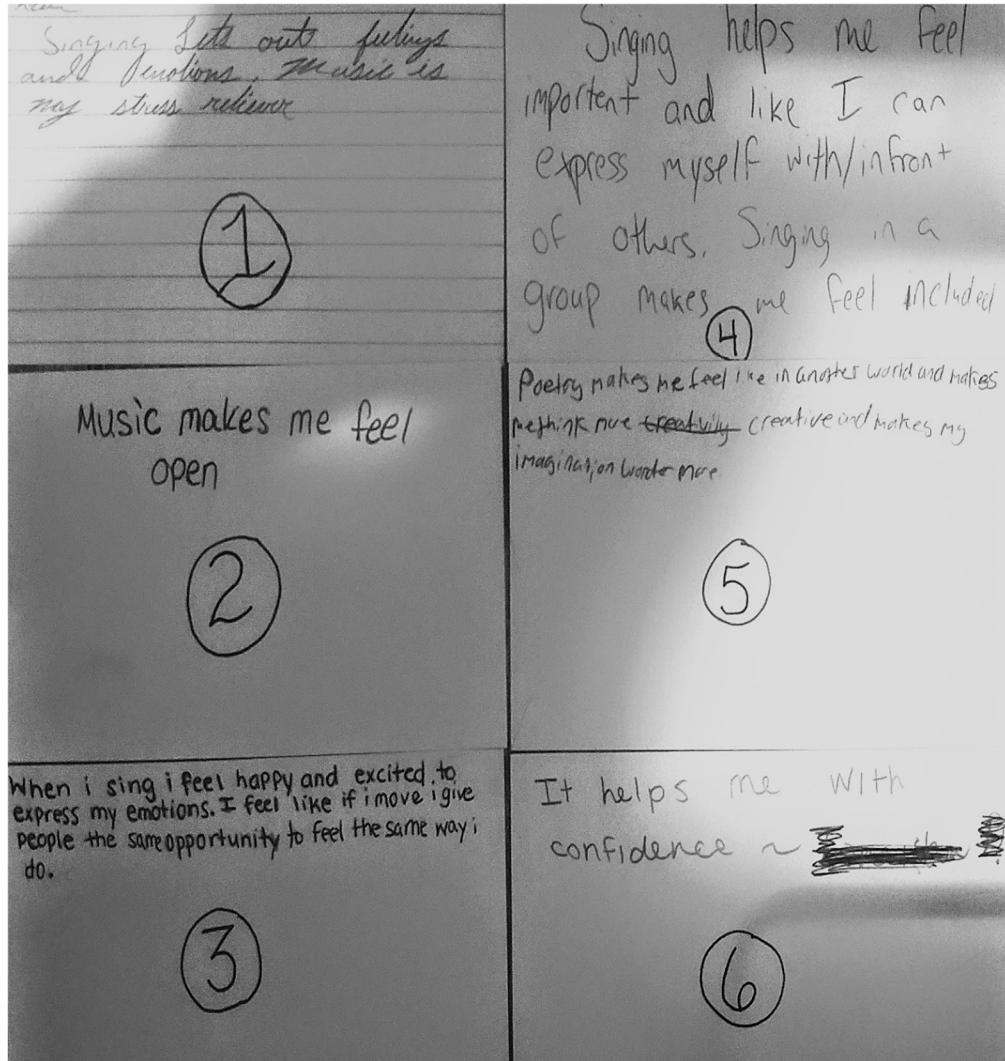 Singing Lets out feelings
and emotions. Music is
my stress reliever
1
Music makes me feel
open
2
When i sing i feel happy and excited to
express my emotions. I feel like if i move i give
people the same opportunity to feel the same way i
do.
3
Singing helps me feel
importent and like I can
express myself with/infront
of others. Singing in a
group makes me feel included
4
Poetry makes me feel like in another world and makes
me think more creativity creative and makes my
imagination wonder more.
5
It helps me with
confidence ~
6